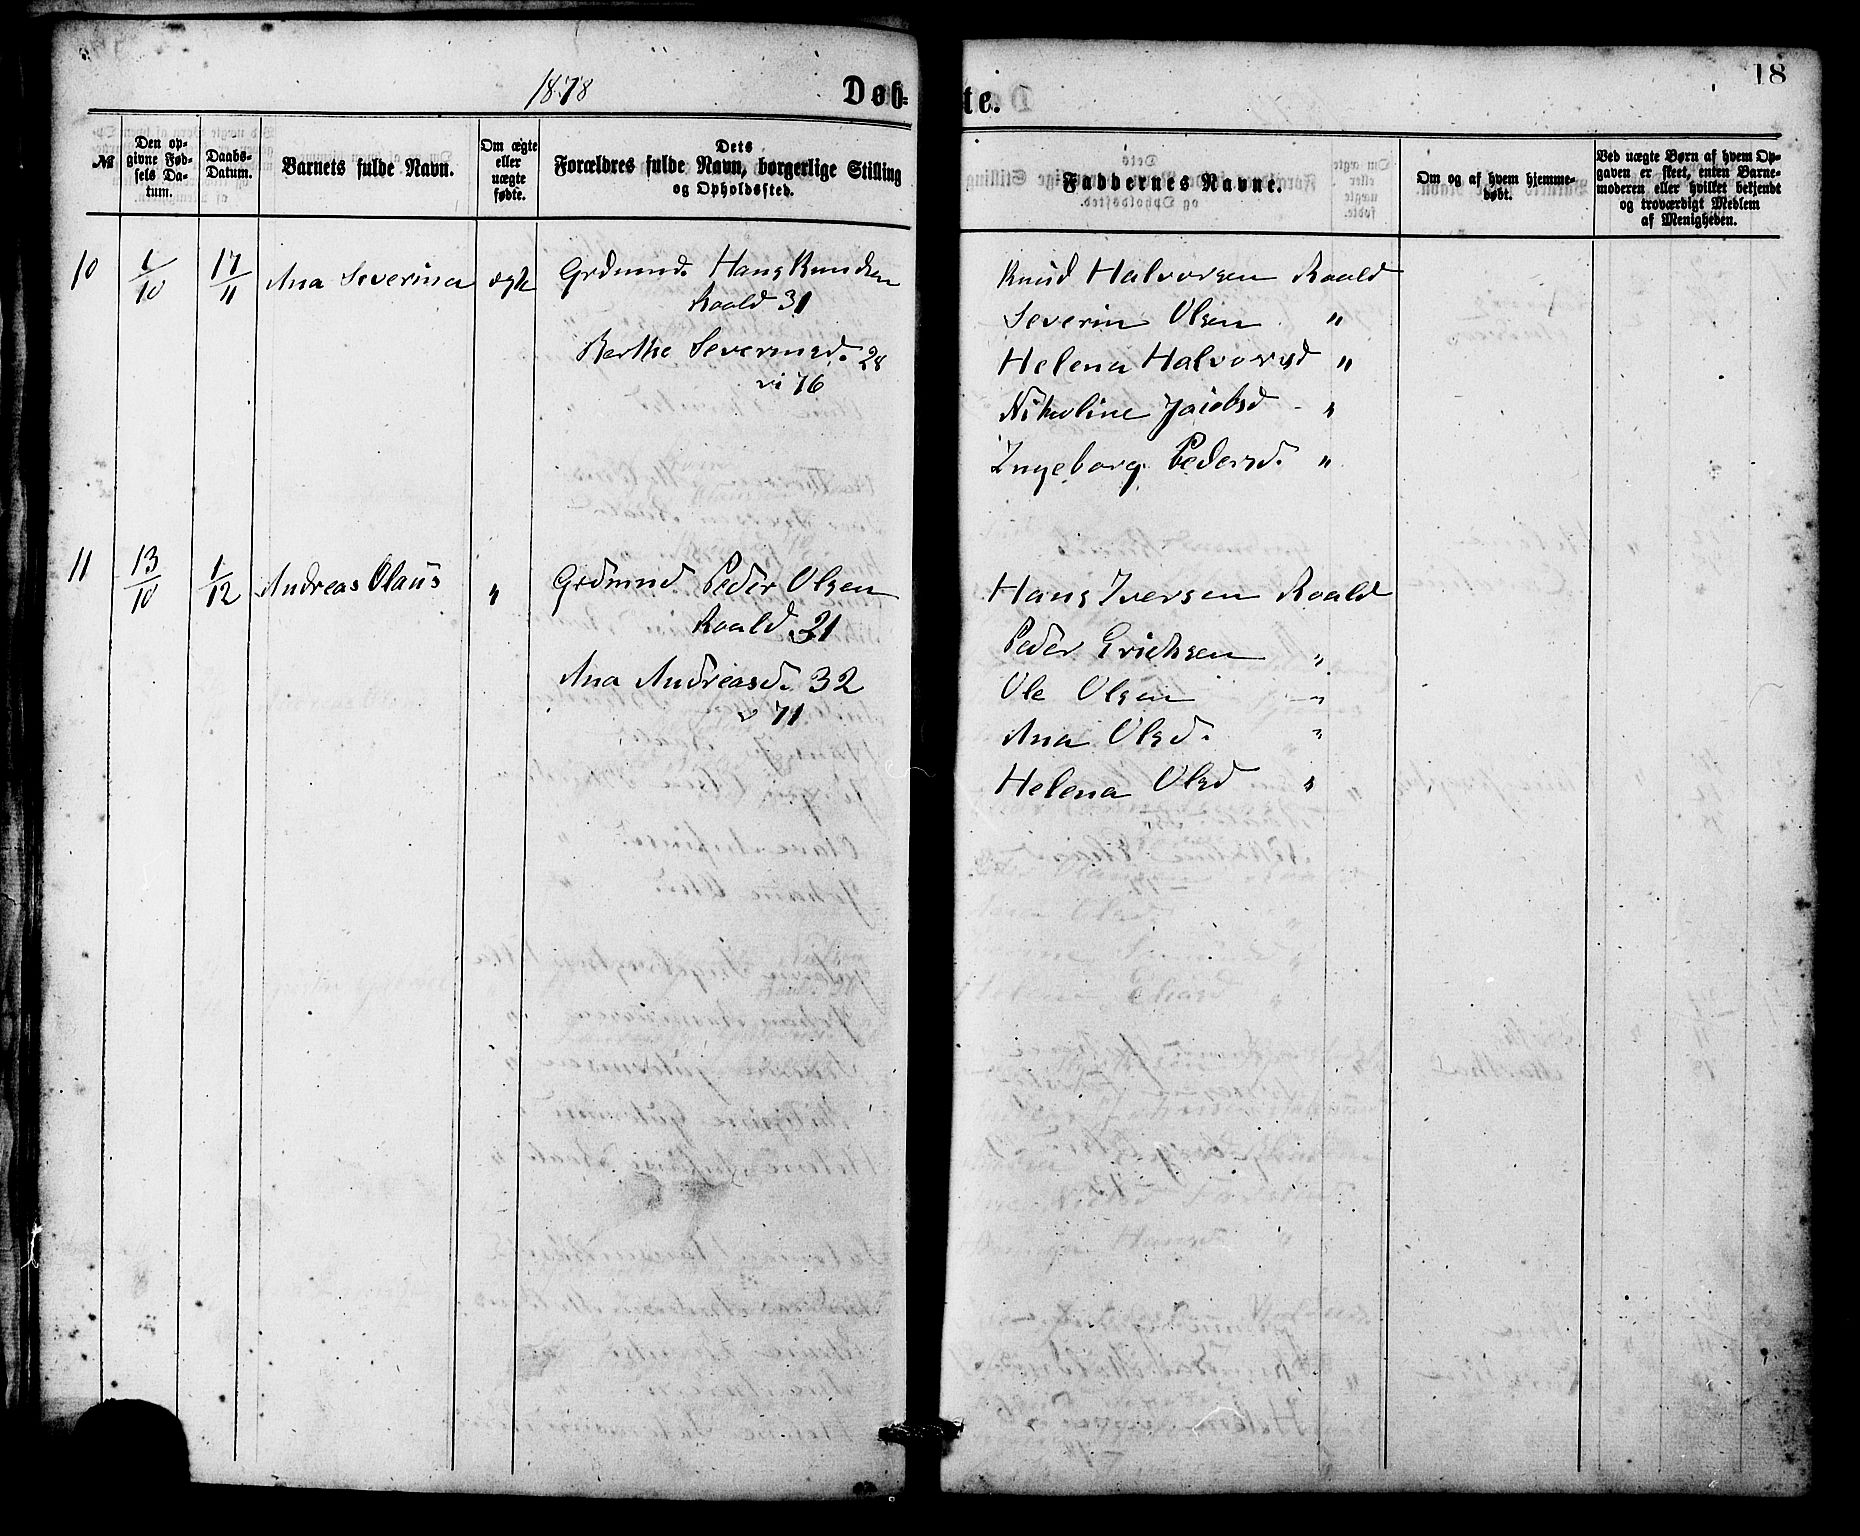 18
1878
Døbte.
№
Den opgivne Fødsels Datum.
Daabs-Datum.
Barnets fulde Navn.
Om ægte eller uægte fødte.
Dets Forældres fulde Navn, borgerlige Stilling og Opholdssted.
Faddernes Navne.
Om og af hvem hjemmedøbt.
Ved uægte Børn af hvem Opgaven er skeet, enten Barnemoderen eller hvilket bekjendt og troværdigt Medlem af Menigheden.
10 6/10 17/11 Ana Severina ægte Grdmnd. Hans Knudsen
Roald 31
Berthe Severinsd. 28
vi 76
Knud Halvorsen Roald
Severin Olsen "
Helena Halvorsd "
Nikoline Jacobsd - "
Ingeborg Pedersd. "
11 13/10 1/12 Andreas Olaus " Grdmnd Peder Olsen
Roald 31
Ana Andreasd. 32
v 71
Hans Iversen Roald
Peder Erichsen "
Ole Olsen - "
Ana Olsd. "
Helena Olsd "